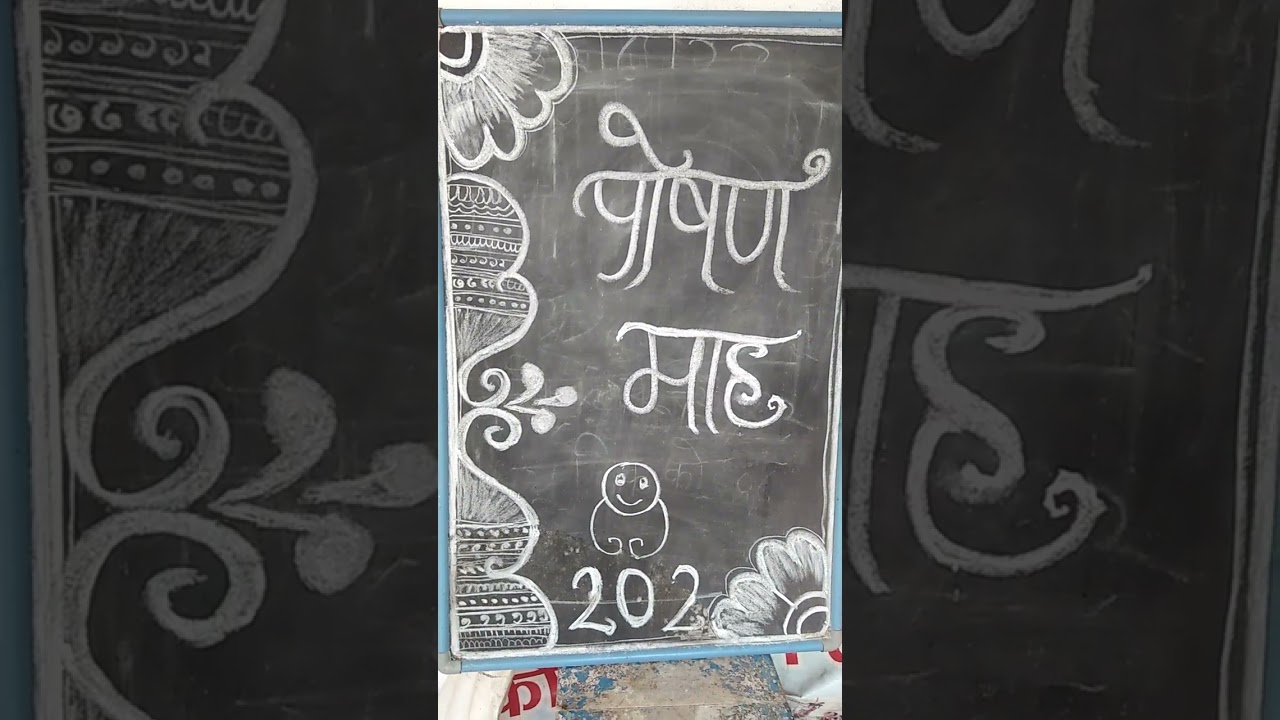 पोषण
माह
202